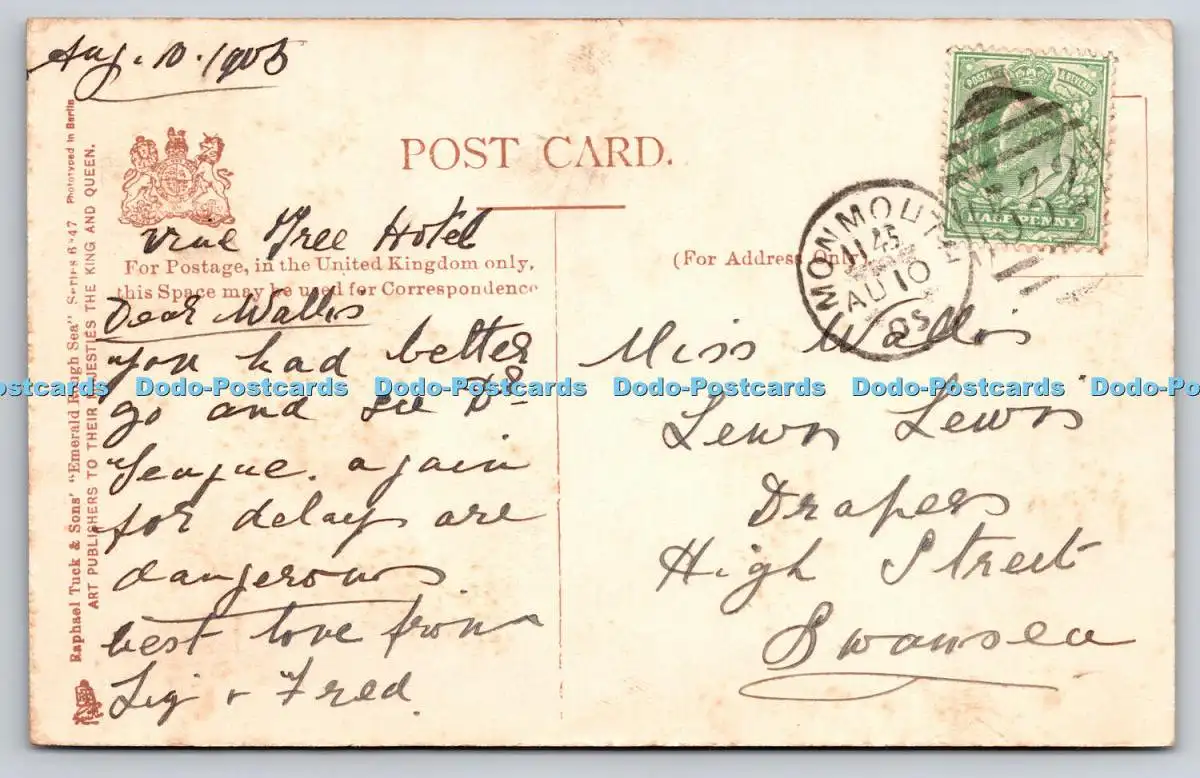 Aug. 10. 1905
POST CARD.
Vine Tree Hotel
For Postage, in the United Kingdom only,
this Space may be used for Correspondence
(For Address Only)
Dear Wallis
you had better
go and see Dr
League. again
for delays are
dangerous
best love from
Lig & Fred.
Miss Wallis
Lewis Lewis
Drapers
High Street
Swansea
POSTAGE & REVENUE
HALFPENNY
MONMOUTH
AU 10
05
Raphael Tuck & Sons' "Emerald Rough Sea" Series 6747 Phototyped in Berlin
ART PUBLISHERS TO THEIR MAJESTIES THE KING AND QUEEN.
Dodo-Postcards Dodo-Postcards Dodo-Postcards Dodo-Postcards Dodo-Postcards